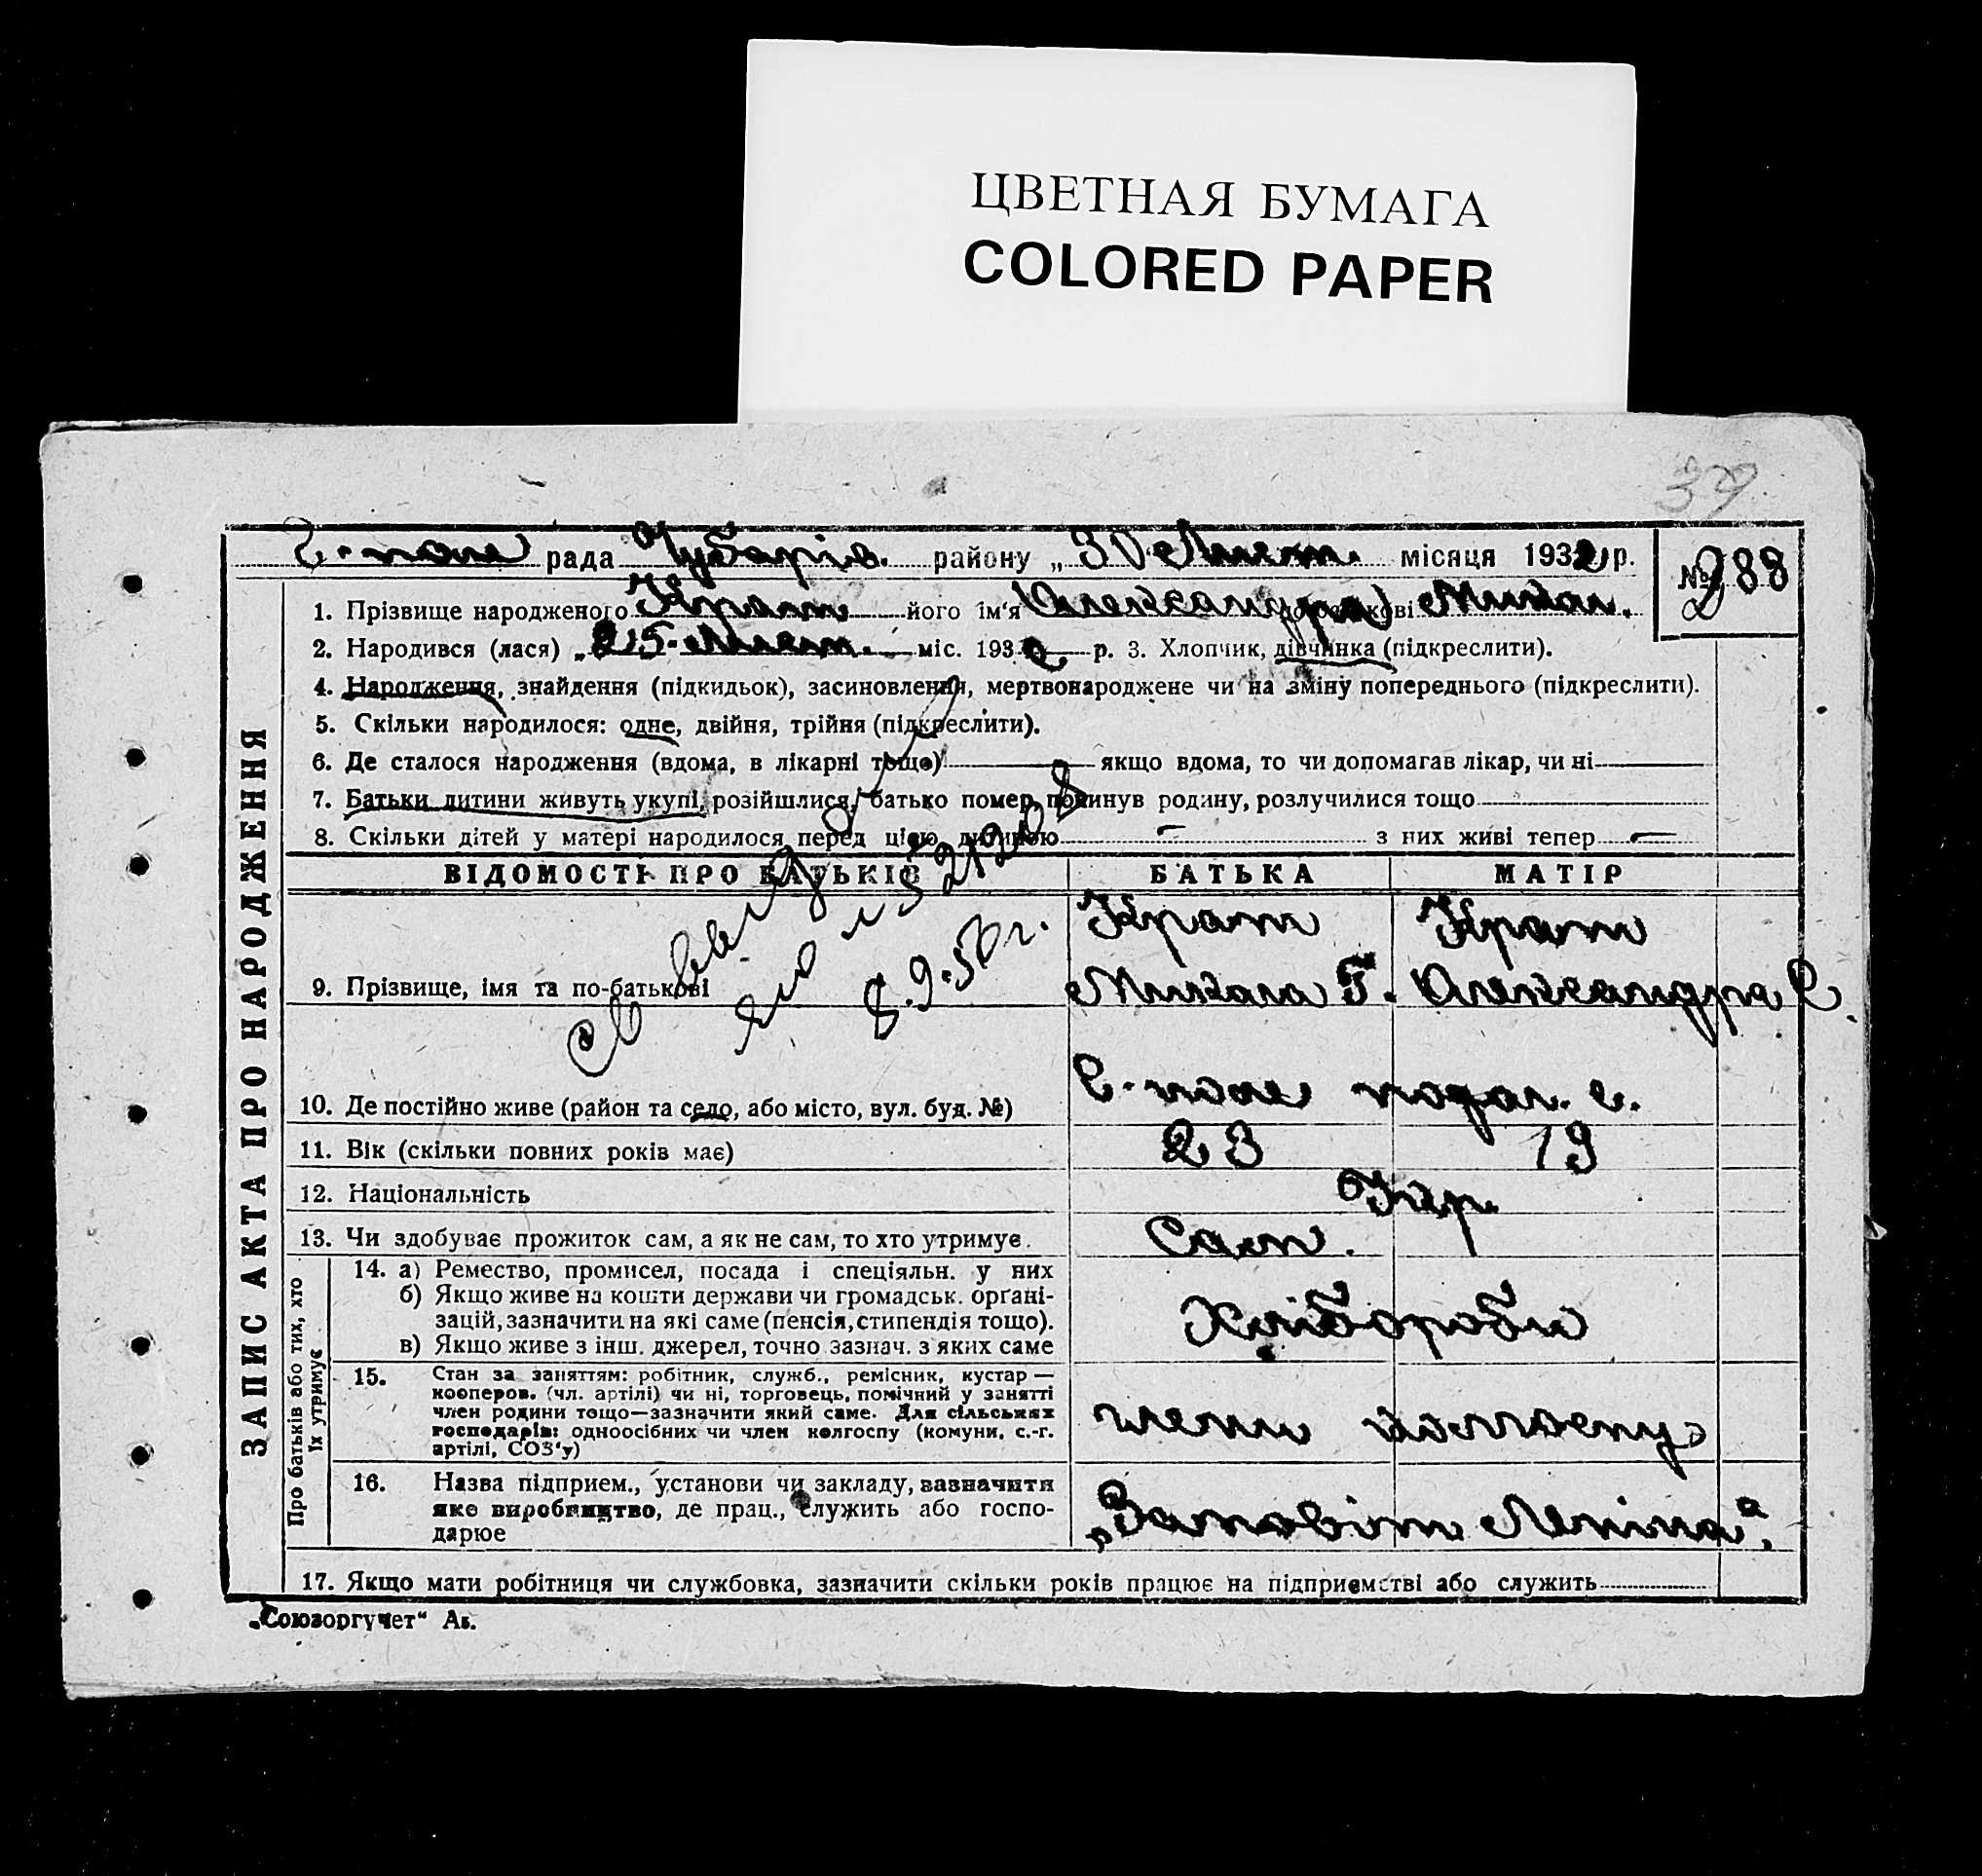 ЦВЕТНАЯ БУМАГА
COLORED PAPER
39
поле рада Чубарів. району „ 30 Лист. місяця 1932 р.
№ 288
1. Прізвище народженого Крат його ім'я Олександра Микол.
2. Народився (лася) „ 25 Лист. міс. 1932 р. 3. Хлопчик, дівчинка (підкреслити).
4. Народження, знайдення (підкидьок), засиновлення, мертвонароджене чи на зміну попереднього (підкреслити).
5. Скільки народилося: одне, двійня, трійня (підкреслити).
6. Де сталося народження (вдома, в лікарні тощо) якщо вдома, то чи допомагав лікар, чи ні
7. Батьки дитини живуть укупі, розійшлися, батько помер, покинув родину, розлучилися тощо
8. Скільки дітей у матері народилося перед цією дитиною — з них живі тепер —
ВІДОМОСТІ ПРО БАТЬКІВ БАТЬКА МАТІР
9. Прізвище, імя та по-батькові
Крат Крат
Микола Г. Олександра С.
8.9.50 г.
10. Де постійно живе (район та село, або місто, вул. буд. №) С. поле
11. Вік (скільки повних років має) 23 19
12. Національність Укр.
13. Чи здобуває прожиток сам, а як не сам, то хто утримує. Сам.
Про батьків або тих, хто їх утримує
14. а) Ремество, промисел, посада і спеціяльн. у них
б) Якщо живе на кошти держави чи громадськ. органі-
зацій, зазначити на які саме (пенсія, стипендія тощо).
в) Якщо живе з інш. джерел, точно зазнач. з яких саме
Хлібороби
15. Стан за заняттям: робітник, служб., ремісник, кустар —
кооперов. (чл. артілі) чи ні, торговець, помічний у занятті
член родини тощо—зазначити який саме. Для сільських
господарів: одноосібних чи член колгоспу (комуни, с.-г.
артілі, СОЗ'у)
члени колгоспу
16. Назва підприєм., установи чи закладу, зазначити
яке виробництво, де прац., служить або госпо-
дарюе
„Заповіт Леніна".
17. Якщо мати робітниця чи службовка, зазначити скільки років працює на підприємстві або служить
ЗАПИС АКТА ПРО НАРОДЖЕННЯ
„Союзоргучет“ Ав.